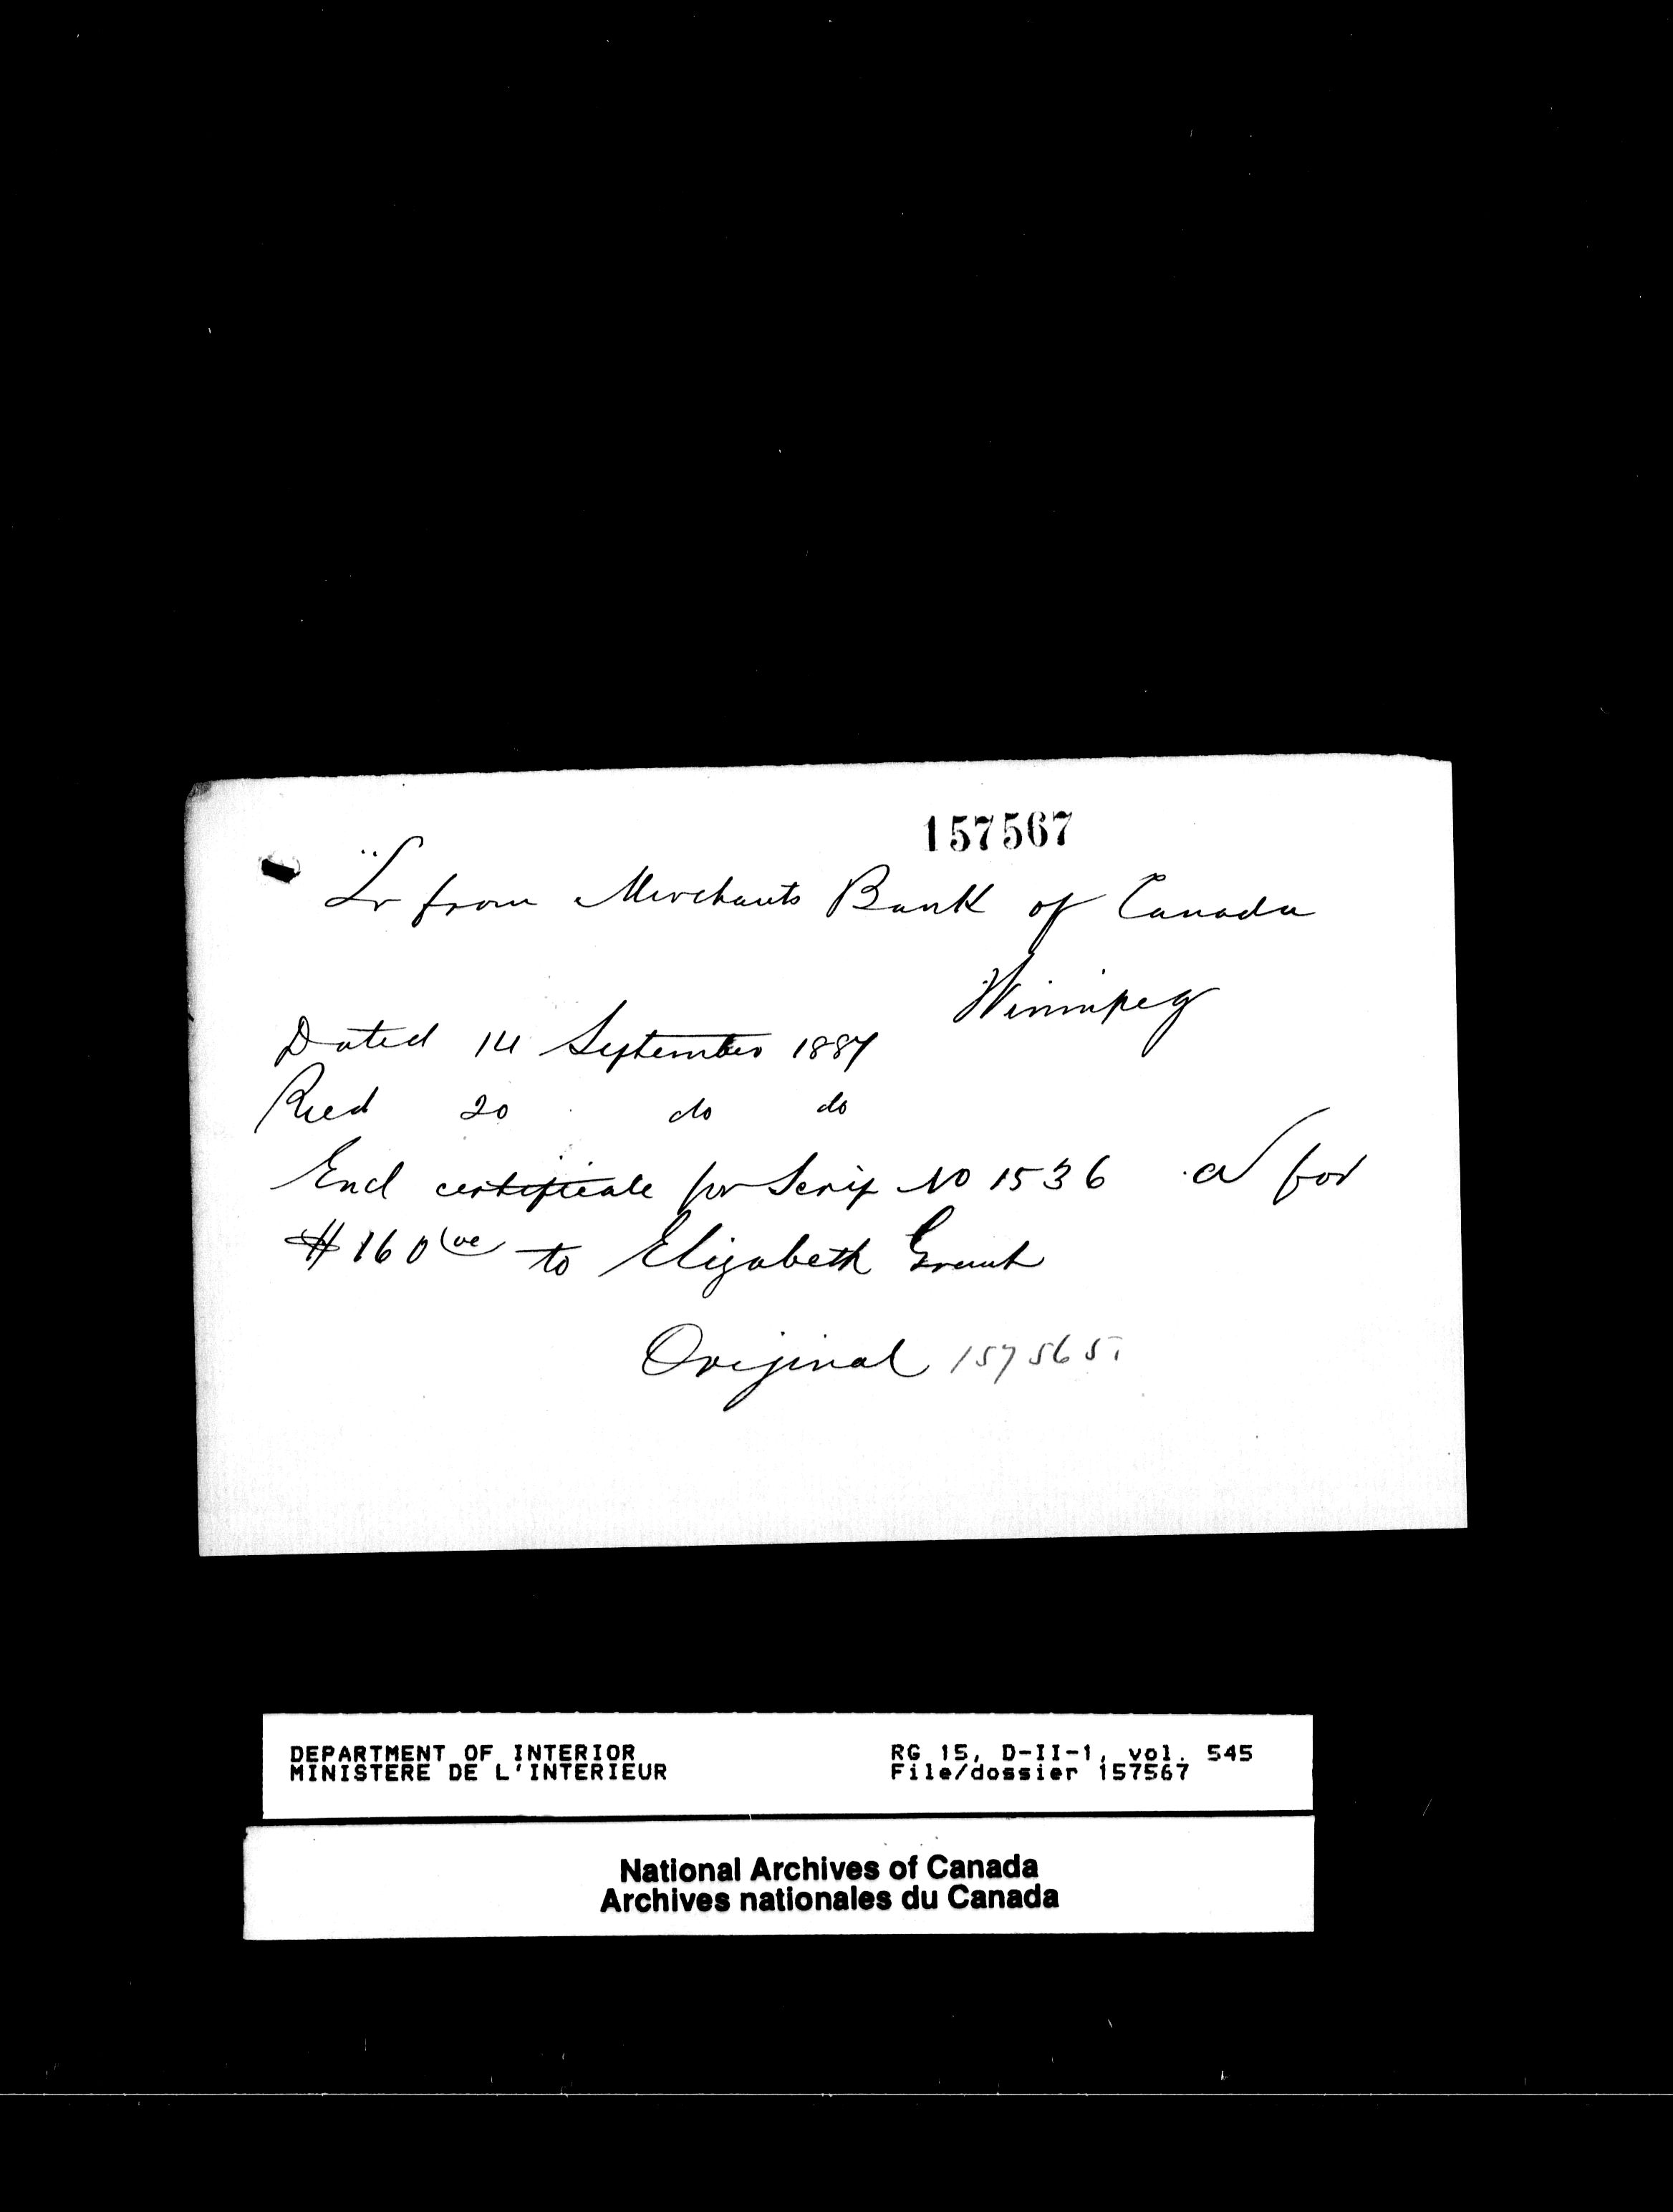 157567
Lr from Merchants Bank of Canada
Winnipeg
Dated 14 September 1887
Recd 20 do do
Encl certificate for Scrip No 1536 a for
$160 00 to Elizabeth Grant
Original 157565
DEPARTMENT OF INTERIOR
MINISTERE DE L'INTERIEUR
RG 15, D-II-1, vol. 545
File/dossier 157567
National Archives of Canada
Archives nationales du Canada